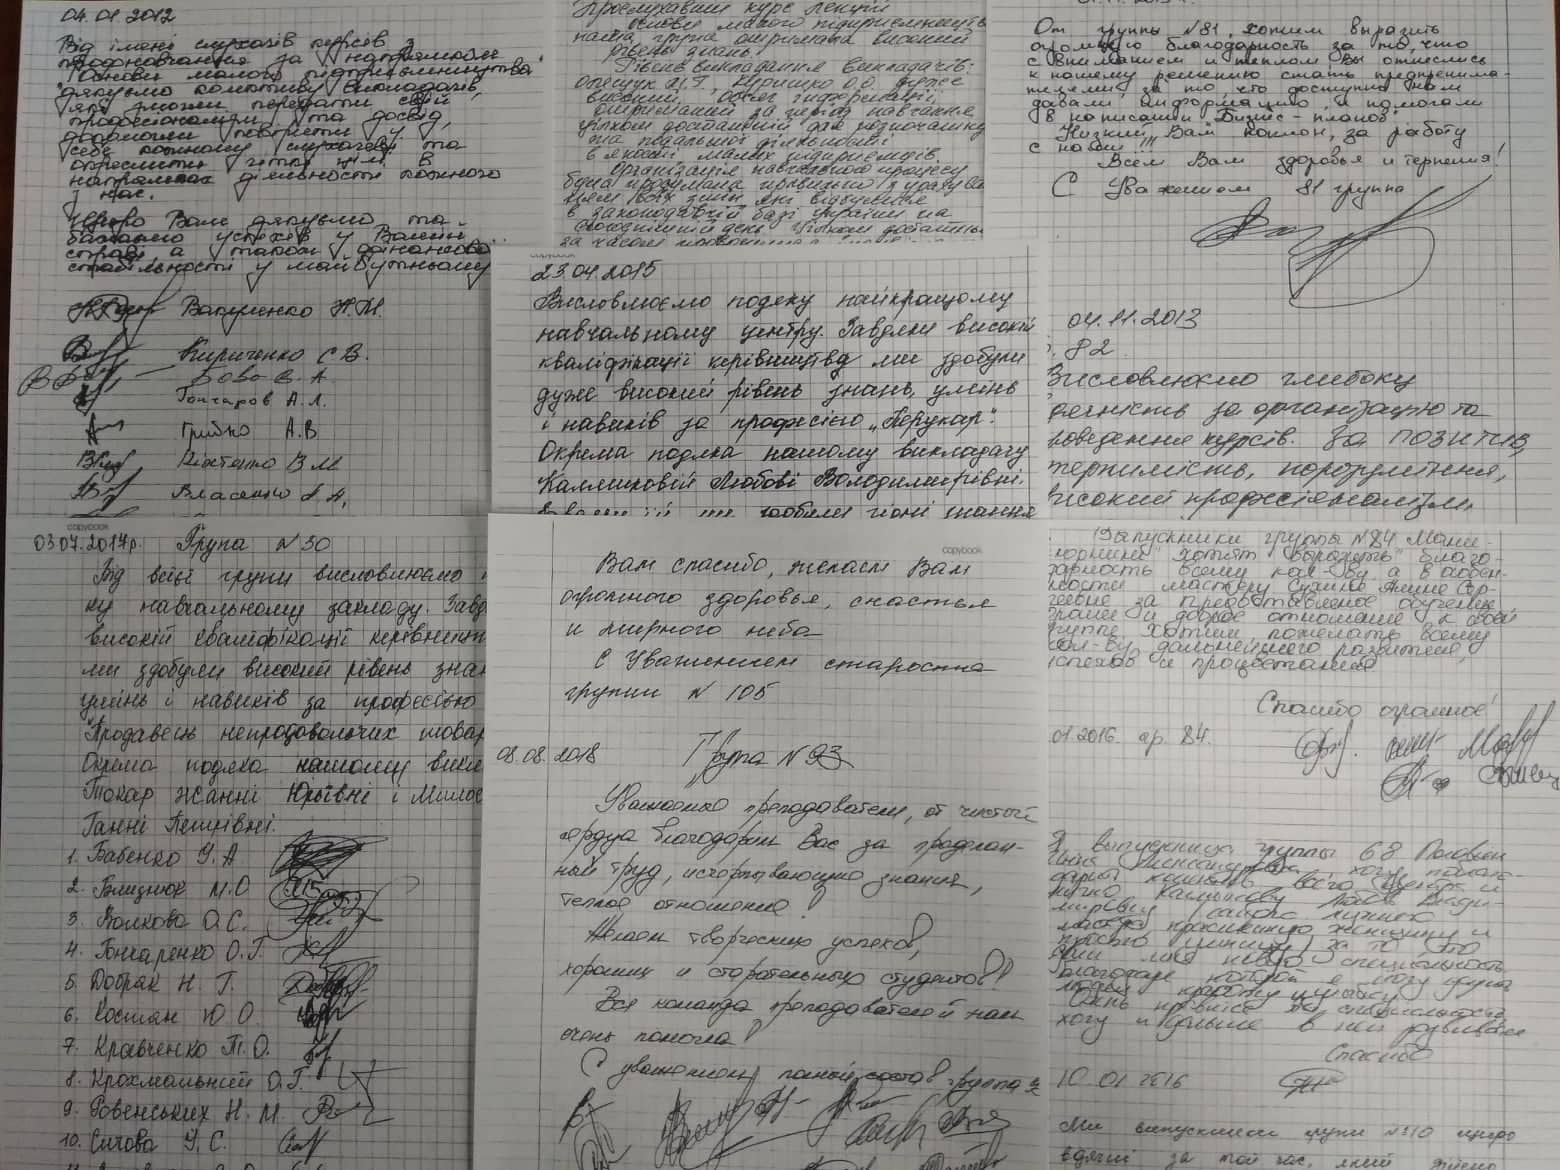 04.01.2012
Від імені слухачів курсів з
профнавчання за напрямком
"Основи малого підприємництва"
дякуємо колективу викладачів,
які змогли передати свій
професіоналізм та досвід,
допомогли повірити у
себе кожному слухачеві та
окреслити чіткі цілі в
напрямках діяльності кожного
з нас.
Щиро Вам дякуємо та
бажаємо успіхів у Вашій
справі а також фінансової
стабільності у майбутньому
Вакуленко Н.М.
Кириченко С В.
Бово В. А.
Гончаров А.Л.
Грибко А.В
В М
Власенко А.А,
Прослухавши курс лекцій
основи малого підприємництва
наша група отримала високий
рівень знань.
Рівень викладання викладачів:
О.О. дуже
високий. Обсяг інформації,
отриманий за період навчання
цілком достатній для розпочатку
та подальшої діяльності
в якості малих підприємців.
Організація навчального процесу
була продумана правильно з урахува
нням всіх змін які відбулися
в законодавчій базі україни на
сьогоднішній день. Цілком достатньо
От группы №81, хотим выразить
огромную благодарность за то, что
с вниманием и теплом Вы отнеслись
к нашему решению стать предпринима-
телями, за то, что доступно нам
давали информацию, и помогали
в написании "Бизнес-планов"
Низкий Вам поклон, за работу
с нами!!!
Всем Вам здоровья и терпения!
С Уважением 81 группа
04.11.2013
82
Висловлюємо глибоку
вдячність за організацію та
роведення курсів. За позитив,
терпимість, порозуміння,
високий професіоналізм.
copybook
23.04.2015
Висловлюємо подяку найкращому
навчальному центру. Завдяки високій
кваліфікації керівництва ми здобули
дуже високий рівень знань, умінь
і навиків за професією „Перукар".
Окрема подяка нашому викладачу
Калмиковій Любові Володимирівні.
copybook
03.07.2017р. Група N 30
Від всієї групи висловлюємо
ку навчальному закладу. Завд
високій кваліфікації керівницт
ми здобули високий рівень знан
умінь і навиків за професією
"Продавець непродовольчих товар
Окрема подяка нашому викл
Токар Жанні Юріївні і Милос
Ганні Петрівні.
1. Бабенко У. А
2. Близнюк М.О
3. Волкова О.С.
4. Гончаренко О.Г.
5. Добрак Н. Г.
6. Костан Ю О.
7. Кравченко Т.О.
8. Крохмальний О.Г.
9. Ровенських Н. М.
10. Сичова У. С.
copybook
Вам спасибо, желаем Вам
огромного здоровья, счастья
и мирного неба
С Уважением староста
группи N 105
08.08.2018 Група N 93
Уважаемые преподаватели, от чистого
сердца благодарим Вас за проделан-
ный труд, исчерпывающие знания,
теплое отношение!
Желаем творческих успехов,
хороших и старательных студентов!
Вся команда преподавателей нам
очень помогла!
С уважением, полный состав группы
Выпускники группы №84 "Мани-
кюрник" хотят выразить благо-
дарность всему кол-ву, а в особен-
ности мастеру Анне Сер-
геевне за предоставленное обучение,
знание и доброе отношение к своей
группе. Хотим пожелать всему
кол-ву дальнейшего развития,
успехов и процветания.
Спасибо огромное!
01.2016. гр. 84.
Я, выпускница группы 68
хочу поблаго-
дарить коллектив всего центра и
лично Калмыкову Любовь Влади-
мировну, самого лучшего
мастера, прекрасную женщину и
просто умницу за то что
дали мне новую специальность
благодаря которой я могу дарить
людям красоту и улыбку.
Очень нравится эта специальность
хочу и дальше в ней развиваться
Спасибо
10.01.2016
Ми випускники групи №110 щиро
вдячні за той час, який